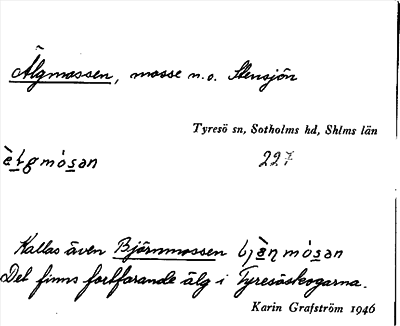 Älgmossen, mosse n.o. Stensjön
Tyresö sn, Sotholms hd, Shlms län
227
Kallas även Björnmossen
Det finns fortfarande älg i Tyresöskogarna.
Karin Grafström 1946